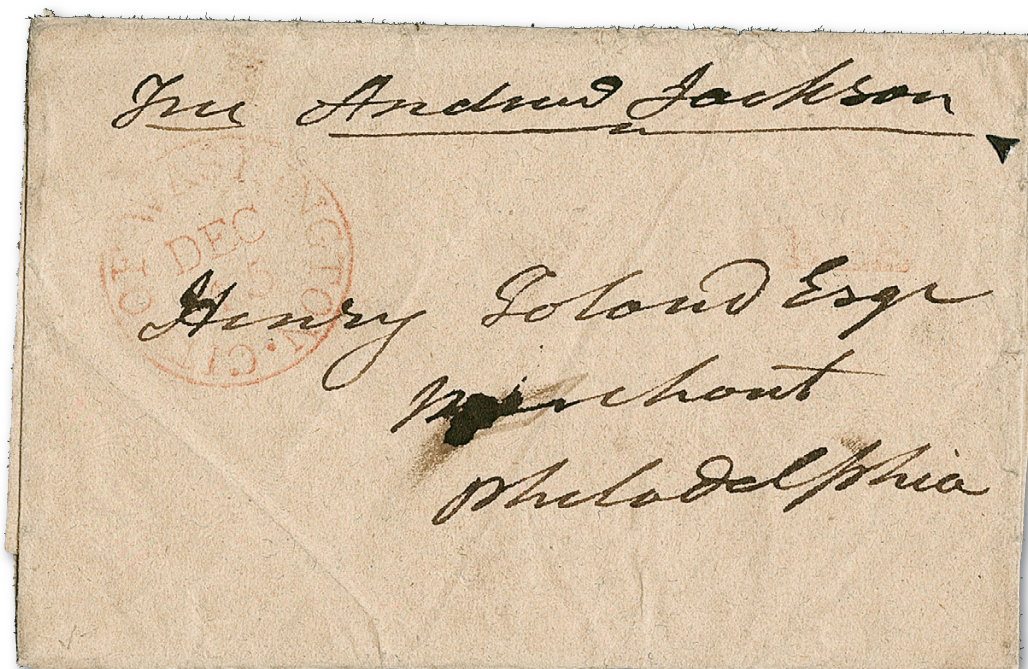 Free Andrew Jackson
WASHINGTON · CITY
DEC
Henry Toland Esqr
Merchant
Philadelphia